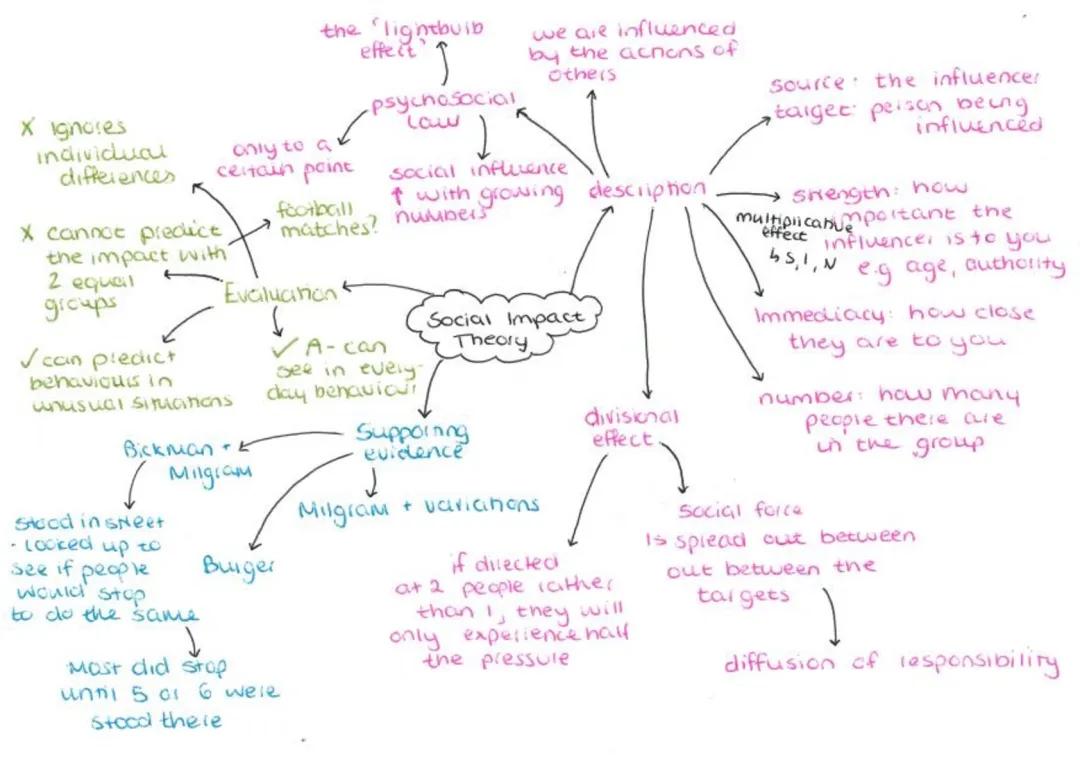 the 'lightbulb
effect'
we are influenced
by the actions of
others
psychosocial
law
only to a
certain point
social influence
↑ with growing
numbers
description
source: the influencer
target: person being
influenced
strength: how
important the
influencer is to you
e.g age, authority
multiplicative
effect
↳ S, I, N
Immediacy: how close
they are to you
number: how many
people there are
in the group
X Ignores
individual
differences
X cannot predict
the impact with
2 equal
groups
football
matches?
Evaluation
✓ can predict
behaviours in
unusual situations
✓ A - can
see in every-
day behaviour
Social Impact
Theory
Supporting
evidence
Bickman +
Milgram
Stood in street
- looked up to
see if people
would stop
to do the same
Most did stop
until 5 or 6 were
stood there
Burger
Milgram + variations
divisional
effect
if directed
at 2 people rather
than 1, they will
only experience half
the pressure
Social force
is spread out between
out between the
targets
diffusion of responsibility